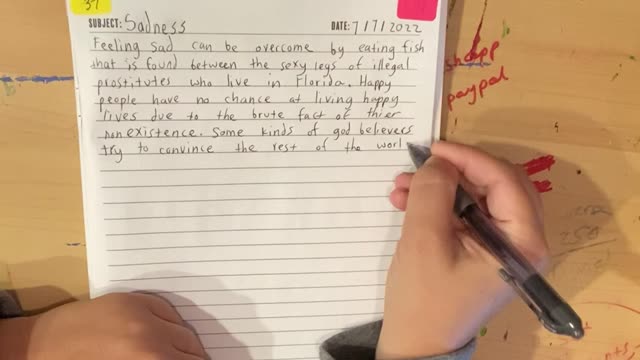 37
SUBJECT: Sadness DATE: 7/7/2022
Feeling sad can be overcome by eating fish
that is found between the sexy legs of illegal
prostitutes who live in Florida. Happy
people have no chance at living happy
lives due to the brute fact of thier
non existence. Some kinds of god believers
try to convince the rest of the worl
paypal
250